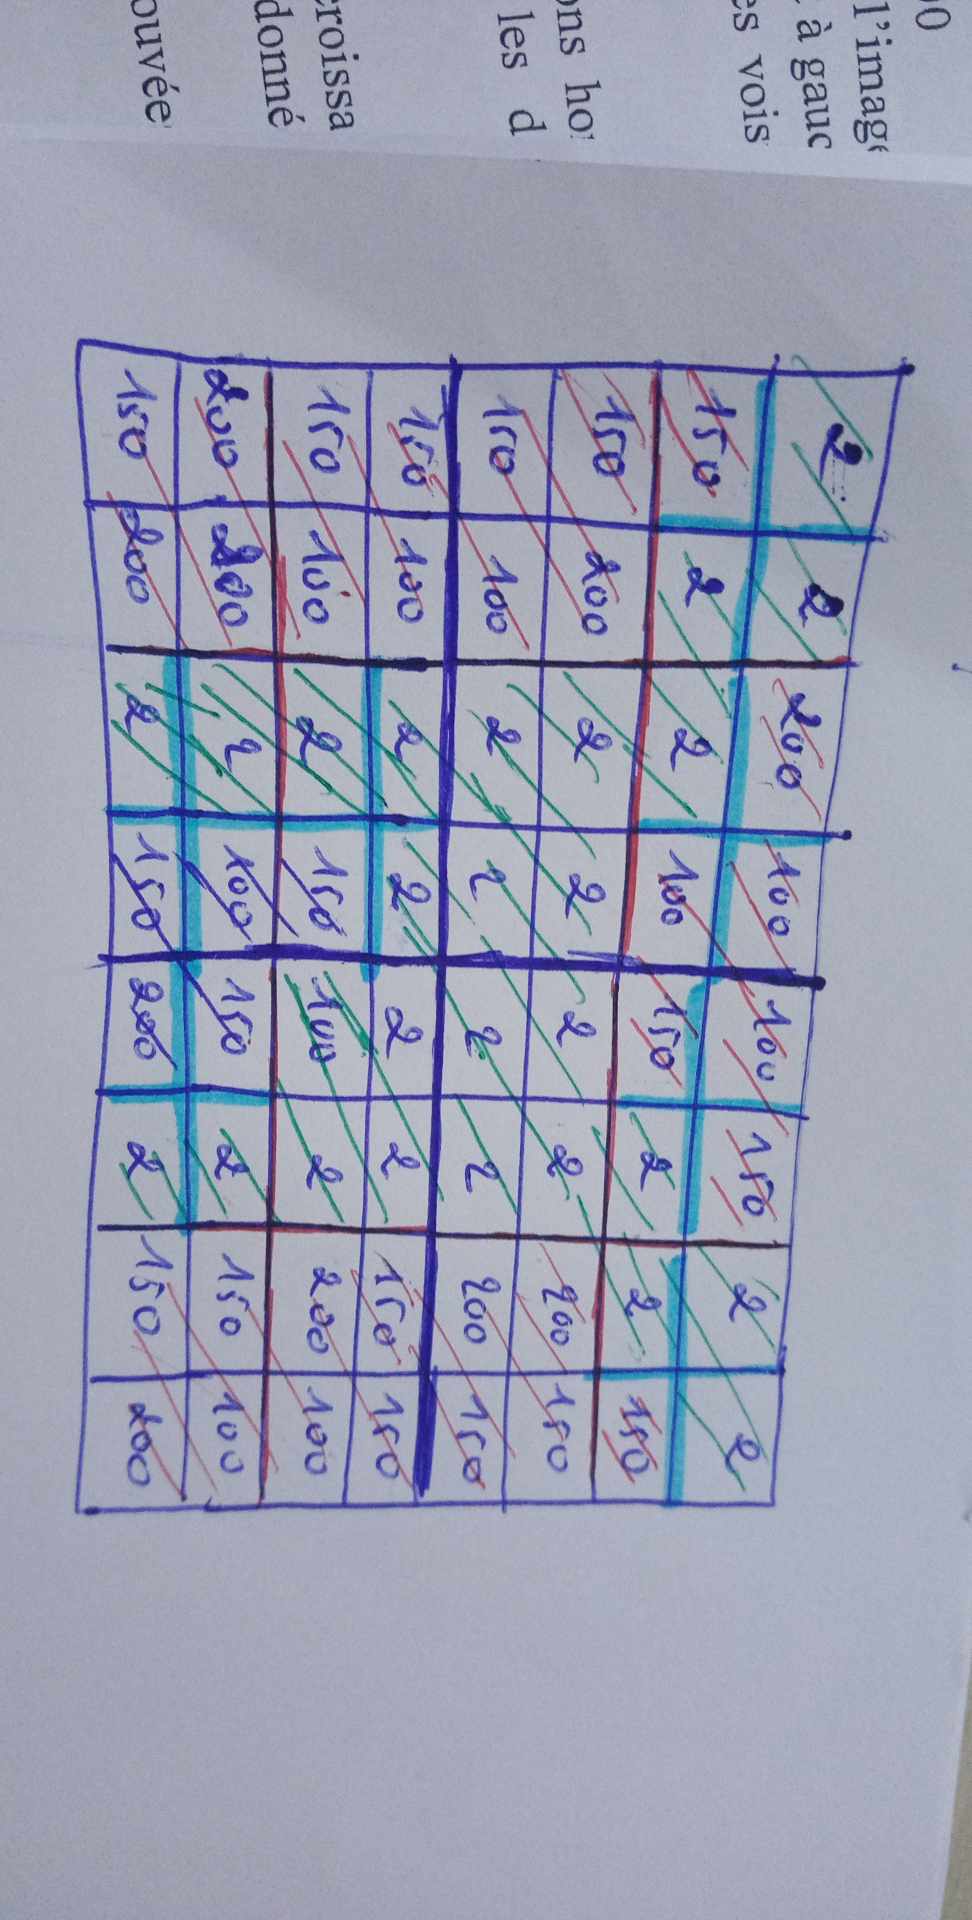 00
l'image
à gauc
es vois
ons ho
les d
croissa
donné
ouvée
2 2 200 100 100 150 2 2
150 2 2 100 150 2 2 150
150 200 2 2 2 2 200 150
150 100 2 2 2 2 200 150
150 100 2 2 2 2 150 150
150 100 2 150 100 2 200 100
200 200 2 100 150 2 150 100
150 200 2 150 200 2 150 200